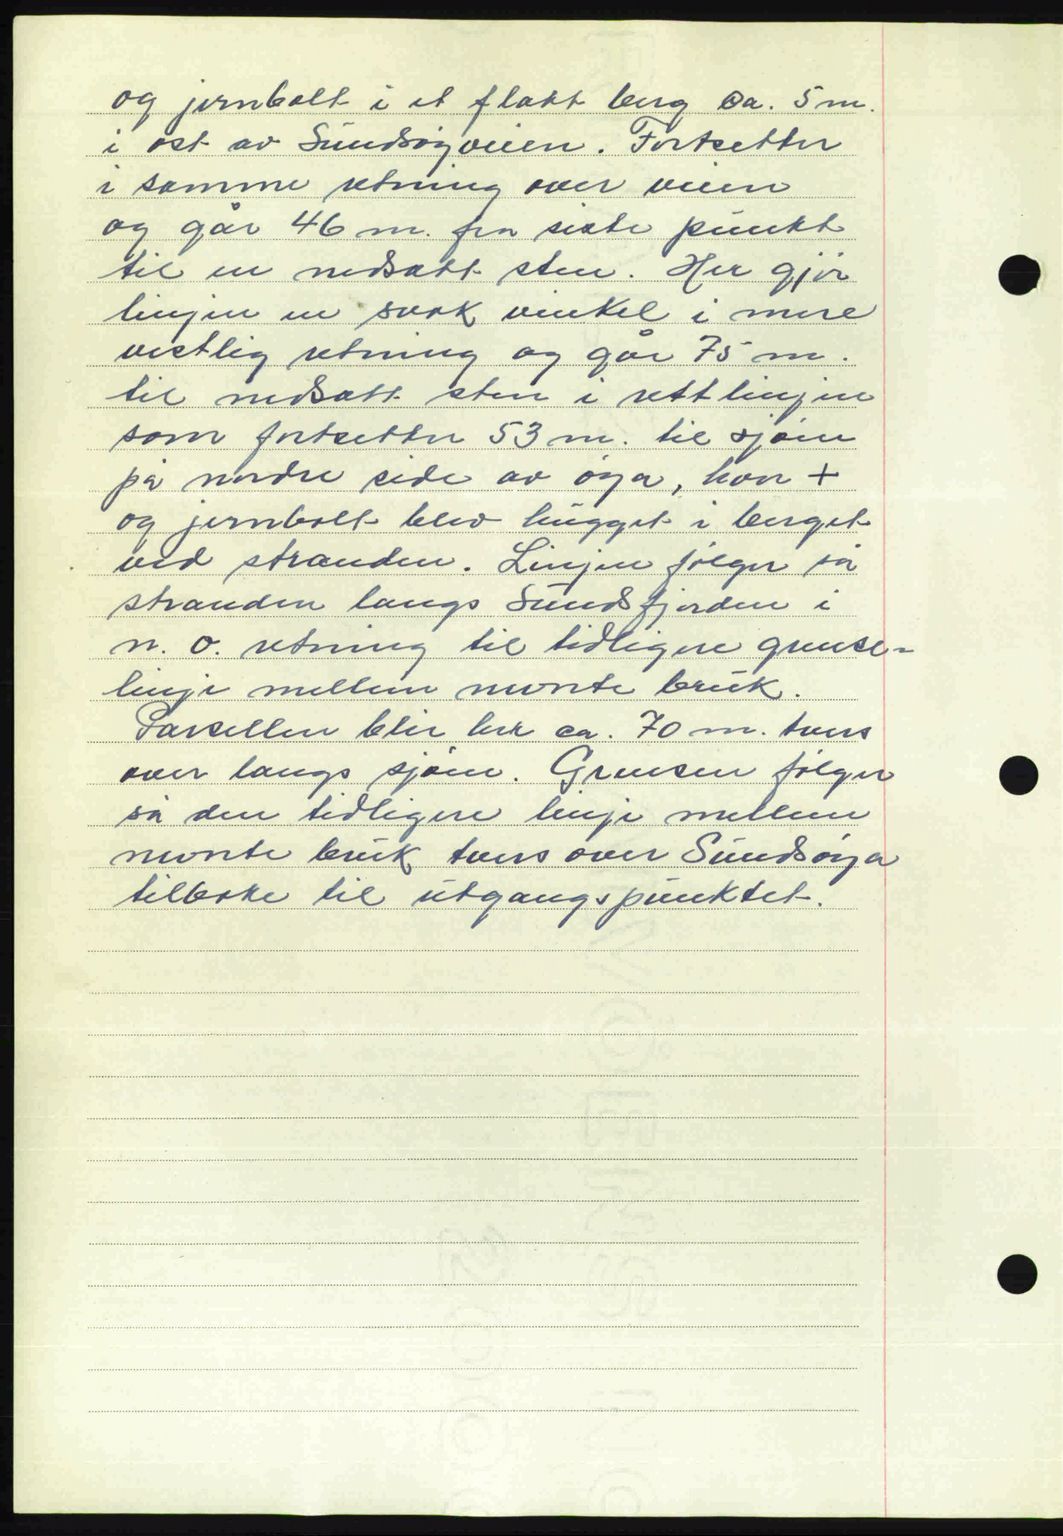 og jernbolt i et flatt berg ca. 5 m.
i øst av Sundsøyveien. Fortsetter
i samme retning over veien
og går 46 m. fra siste punkt
til en nedsatt sten. Her gjør
linjen en svak vinkel i mere
vestlig retning og går 75 m.
til nedsatt sten i rett linjen
som fortsetter 53 m. til sjøen
på nordre side av øya, hvor +
og jernbolt blev hugget i berget
ved stranden. Linjen følger så
stranden langs Sundsfjorden i
n. o. retning til tidligere grense-
linje mellem nevnte bruk.
Parsellen blir her ca. 70 m. tvers
over langs sjøen. Grensen følger
så den tidligere linje mellem
nevnte bruk tvers over Sundsøya
tilbake til utgangspunktet.